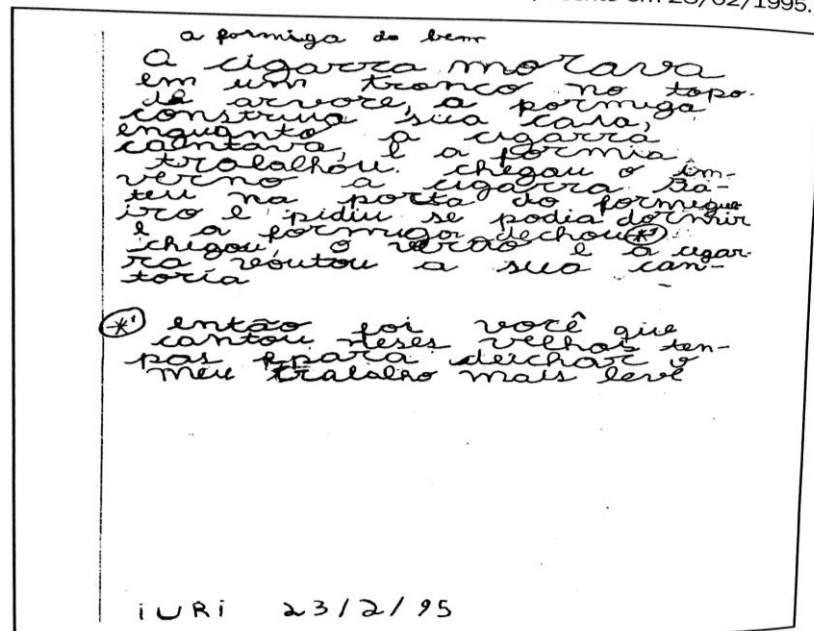 em 23/02/1995.
a formiga do bem
A cigarra morava
em um tronco no topo
da arvore, a formiga
construia sua casa,
enquanto a cigarra
caintava, e a formia
trabalhou. chegou o im-
verno a cigarra ba-
teu na porta do formigue
iro e pidiu se podia dormir
e a formiga dechou *¹
chegou o verão e a cigar-
ra voutou a sua can-
toria
*¹ então foi você que
cantou neses velhos ten-
pos para deichar o
meu trabalho mais leve
iURi 23/2/95